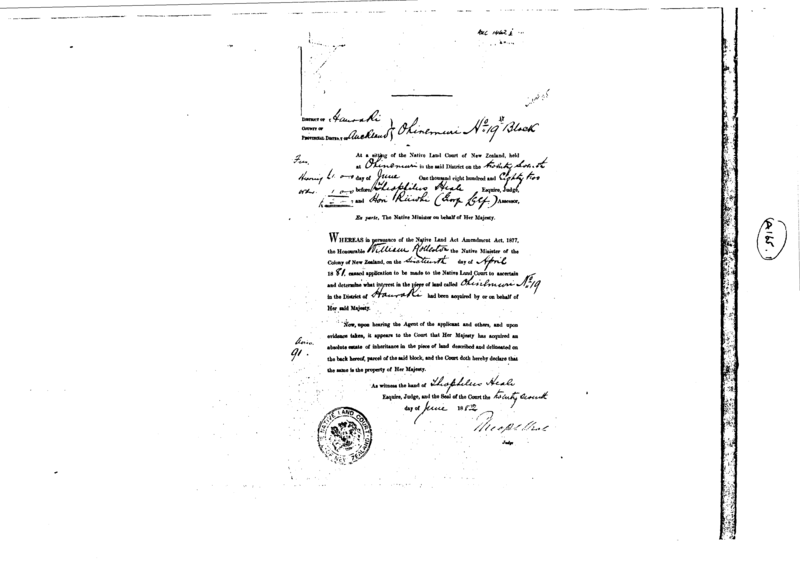 DISTRICT OF Hauraki
COUNTY OF
PROVINCIAL DISTRICT OF Auckland } Ohinemuri No. 19 Block
At a sitting of the Native Land Court of New Zealand, held
at Ohinemuri in the said District on the twenty seventh
day of June One thousand eight hundred and Eighty two
before Theophilus Heale Esquire, Judge,
and Hori (George) Assessor.
Ex parte, The Native Minister on behalf of Her Majesty.
WHEREAS in pursuance of the Native Land Act Amendment Act, 1877,
the Honourable William Rolleston the Native Minister of the
Colony of New Zealand, on the sixteenth day of April
1881. caused application to be made to the Native Land Court to ascertain
and determine what interest in the piece of land called Ohinemuri No. 19
in the District of Hauraki had been acquired by or on behalf of
Her said Majesty.
Now, upon hearing the Agent of the applicant and others, and upon
evidence taken, it appears to the Court that Her Majesty has acquired an
absolute estate of inheritance in the piece of land described and delineated on
the back hereof, parcel of the said block, and the Court doth hereby declare that
the same is the property of Her Majesty.
As witness the hand of Theophilus Heale
Esquire, Judge, and the Seal of the Court the twenty seventh
day of June 1882
Theoph Heale
Judge
NATIVE LAND COURT OF NEW ZEALAND
Hearing
91.
A165.1